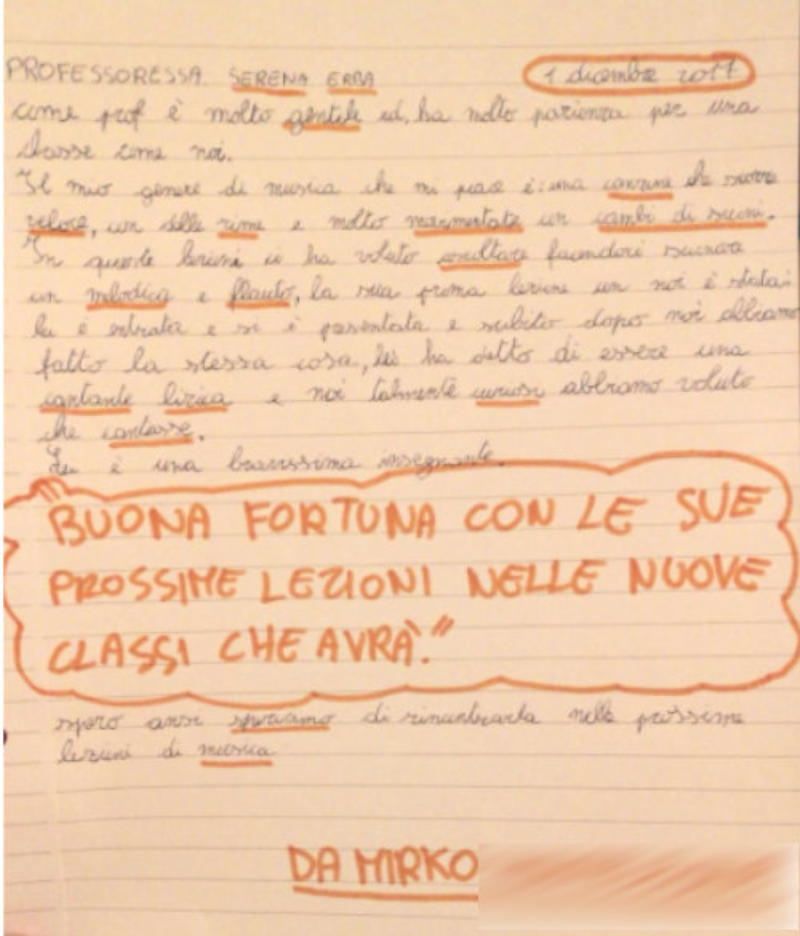 PROFESSORESSA SERENA ERBA
1 dicembre 2017
come prof è molto gentile ed ha molta pazienza per una
classe come noi.
Il mio genere di musica che mi piace è: una canzone che scorre
veloce, con delle rime e molto con cambi di suoni.
In queste lezioni ci ha voluto facendoci suonare
con melodica e flauto, la sua prima lezione con noi è stata:
lei è entrata e si è pasentata e subito dopo noi abbiamo
fatto la stessa cosa, lei ha detto di essere una
cantante lirica e noi talmente curiosi abbiamo voluto
che cantasse.
Lei è una bravissima insegnante.
"BUONA FORTUNA CON LE SUE
PROSSIME LEZIONI NELLE NUOVE
CLASSI CHE AVRÀ."
spero anzi speriamo di rincontrarla nelle prossime
lezioni di musica
DA MIRKO